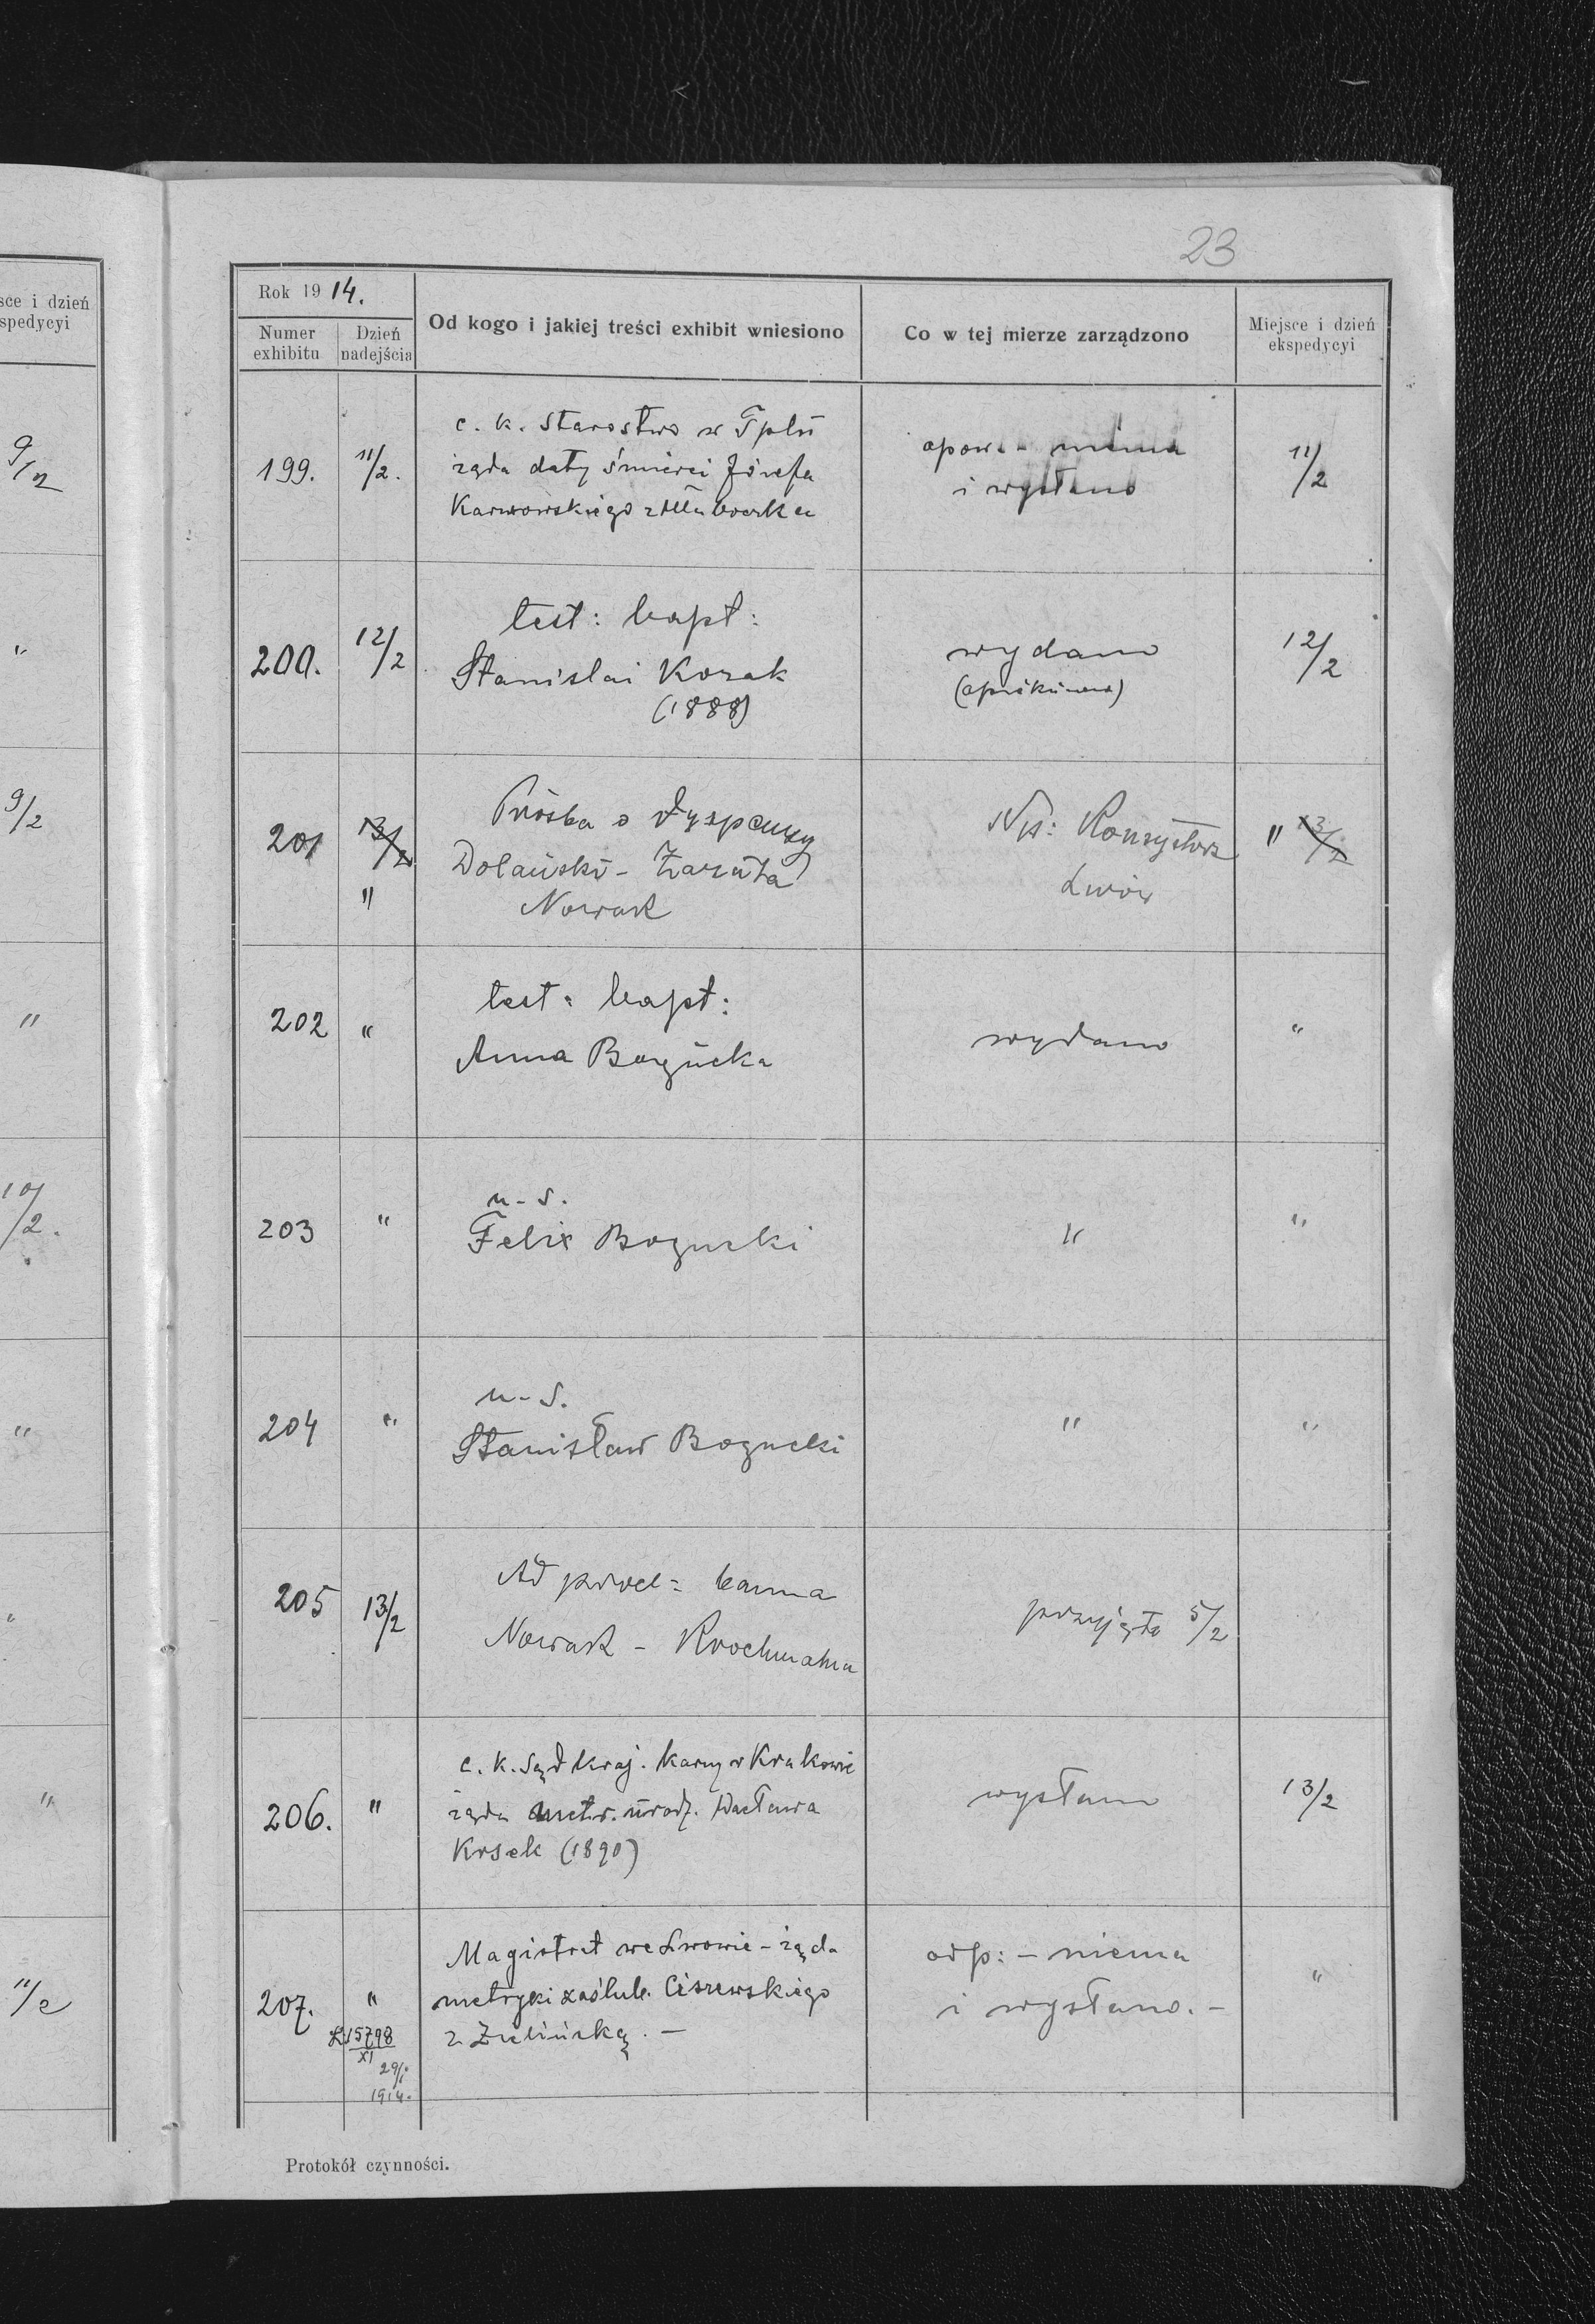 sce i dzień
spedycyi
9/2
"
9/2
"
10/2.
"
"
"
11/2
23
Rok 1914.
Numer exhibitu
Dzień nadejścia
Od kogo i jakiej treści exhibit wniesiono
Co w tej mierze zarządzono
Miejsce i dzień ekspedycyi
199.
11/2.
c. k. Starostwo w Tplu
żąda daty śmierci Józefa
Karwowskiego z
niema
i wysłano
11/2
200.
12/2
test: bapt:
Stanislai Kozak
(1888)
wydano
12/2
201
13/2
"
Prośba o dyspenzę
Dolański - Zaręba
Nowak
Konzystorz
Lwów
" 13/2
202
"
test: bapt:
Anna Bogucka
wydano
"
203
"
n - s.
Felix Bogucki
"
"
204
"
n - s.
Stanisław Bogucki
"
"
205
13/2
Ad procl: banna
Nowak - Krochmalna
przyjęto 5/2
206.
"
c. k. Sąd kraj. karny w Krakowie
żąda metr. urodz. Wacława
Krsek (1890)
wysłano
13/2
207.
"
L 15798
XI
29/1
1914.
Magistrat we Lwowie - żąda
metryki zaślub. Ciszewskiego
z Zielińską. -
odp: - niema
i wysłano. -
"
Protokół czynności.